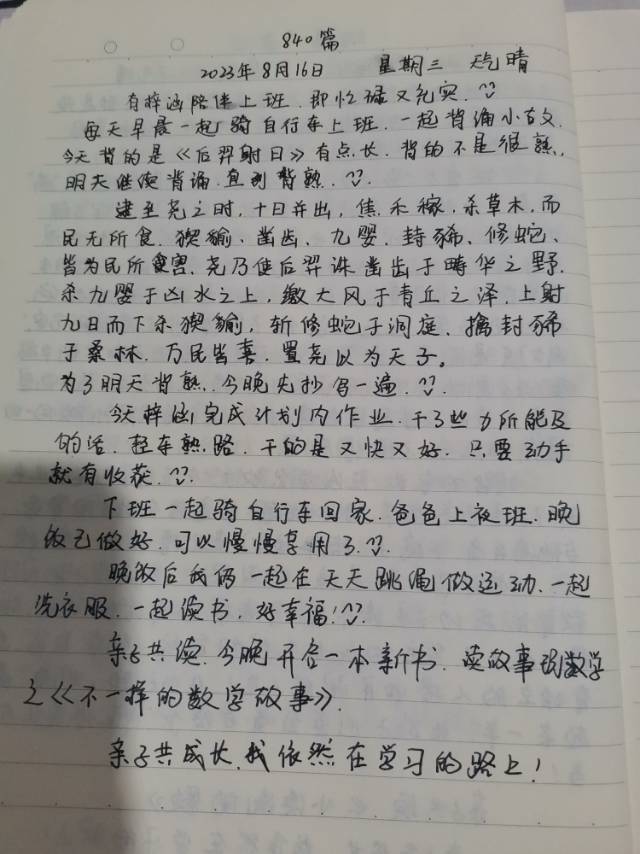 840篇
2023年8月16日 星期三 天气晴
有梓涵陪伴上班.即忙碌又充实.
每天早晨一起骑自行车上班.一起背诵小古文.
今天背的是《后羿射日》有点长.背的不是很熟.
明天继续背诵.直到背熟.
逮至尧之时,十日并出,焦禾稼,杀草木,而
民无所食.猰貐、凿齿、九婴、封豨、修蛇、
皆为民所害.尧乃使后羿诛凿齿于畴华之野.
杀九婴于凶水之上,缴大风于青丘之泽.上射
九日而下杀猰貐,斩修蛇于洞庭.擒封豨
于桑林.万民皆喜.置尧以为天子。
为了明天背熟.今晚先抄写一遍.
今天梓涵完成计划内作业.干了些力所能及
的活.轻车熟路.干的是又快又好.只要动手
就有收获.
下班一起骑自行车回家.爸爸上夜班.晚
饭已做好.可以慢慢享用了.
晚饭后我俩一起在天天跳绳做运动.一起
洗衣服.一起读书.好幸福!
亲子共读.今晚开启一本新书.读故事玩数学
之《不一样的数学故事》.
亲子共成长.我依然在学习的路上!